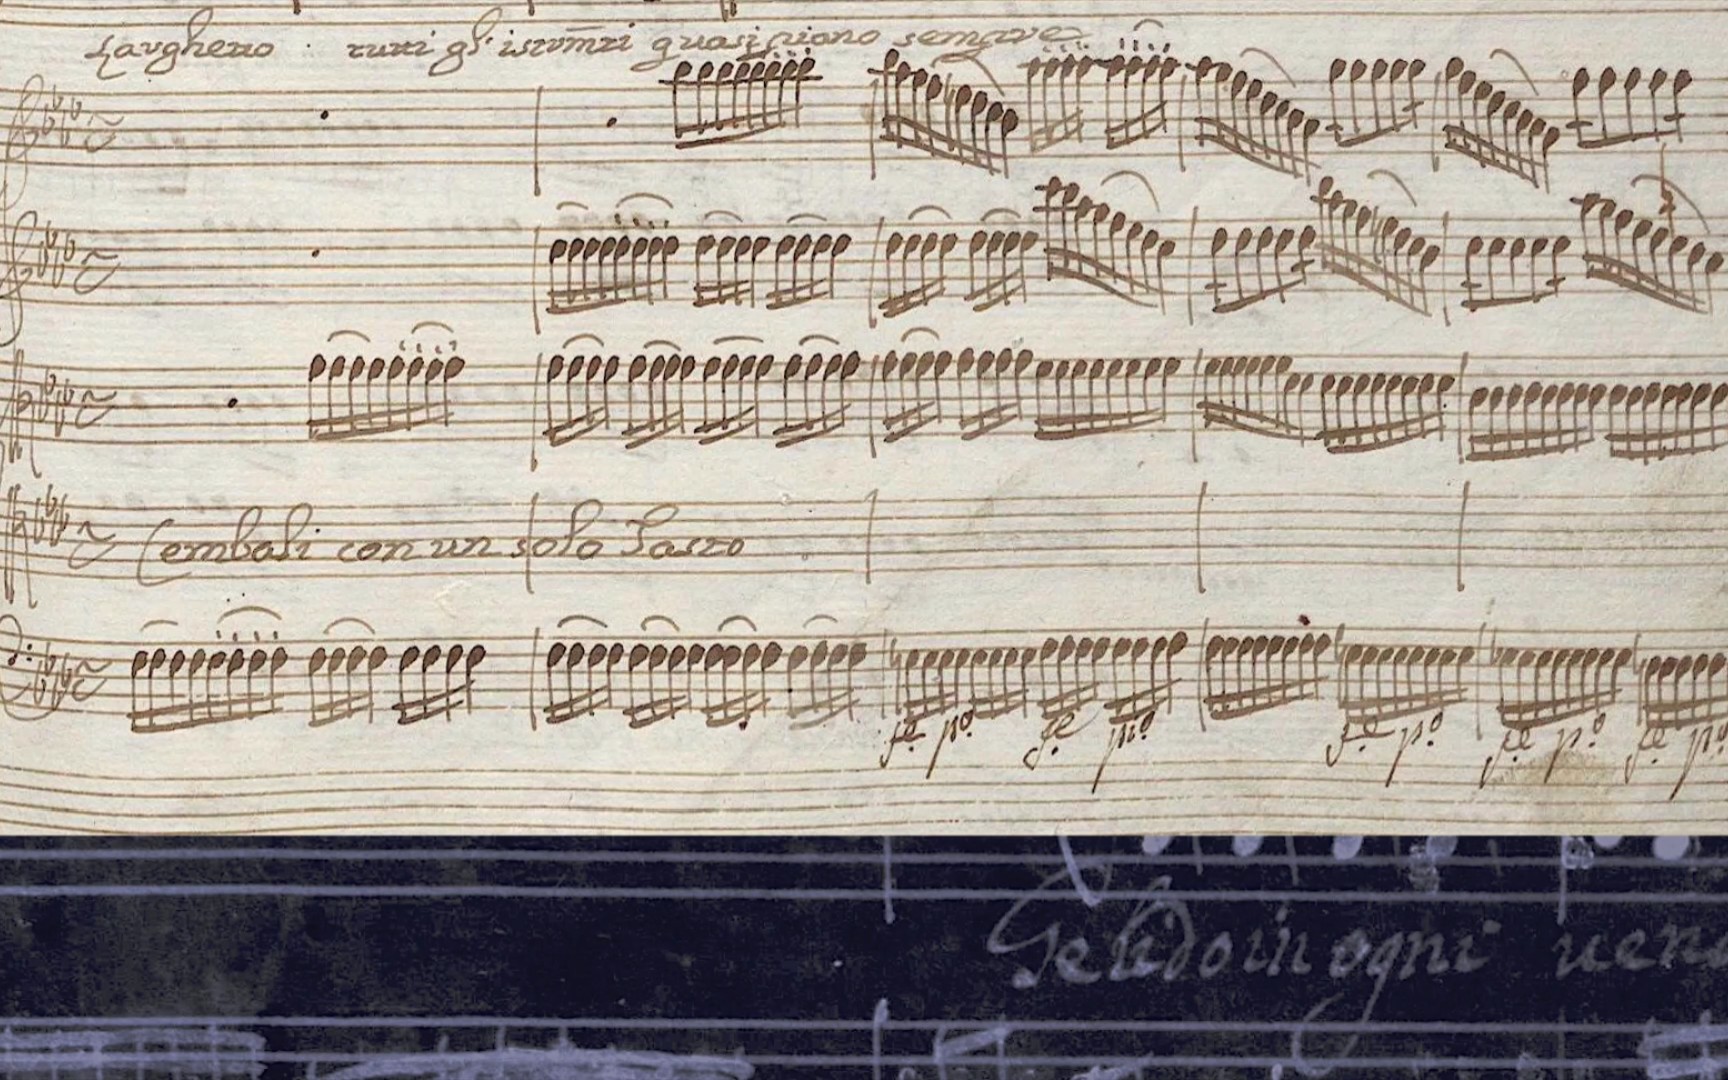 Larghetto : tutti gl' istromti quasi piano sempre
Cembali con un solo Tasto
fe po fe po fe po fe po fe po
Gelido in ogni vena